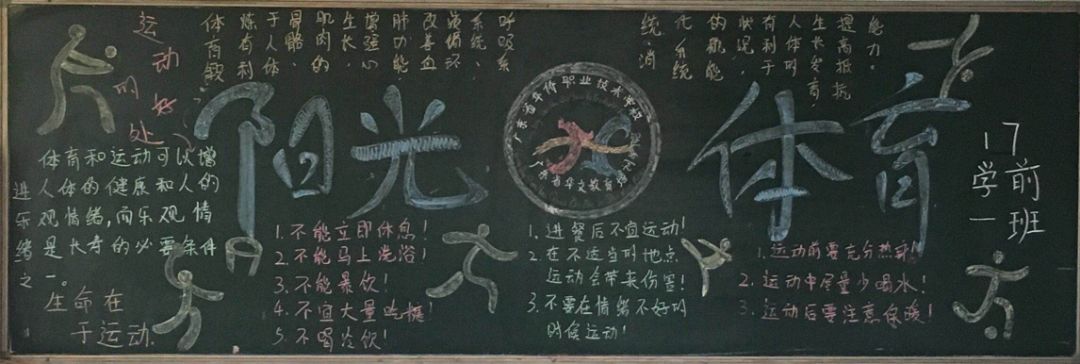 运动的好处
体育锻
炼有利
于人体
骨骼、
肌肉的
生长，
增强心
肺功能
改善血
液循环
系统、
呼吸系
统、消
化系统
的机能
状况，
有利于
人体的
生长发育，
提高抵抗
能力。
阳光
广东省华侨职业技术学校
体育
17
学前
一班
体育和运动可以增
进人体的健康和人的
乐观情绪，而乐观情
绪是长寿的必要条件
之一。
生命在
于运动
1.不能立即休息！
2.不能马上洗浴！
3.不能暴饮！
4.不宜大量吃糖！
5.不喝冷饮！
1.进餐后不宜运动！
2.在不适当的地点
运动会带来伤害！
3.不要在情绪不好的
时候运动！
1.运动前要充分热身！
2.运动中尽量少喝水！
3.运动后要注意保暖！